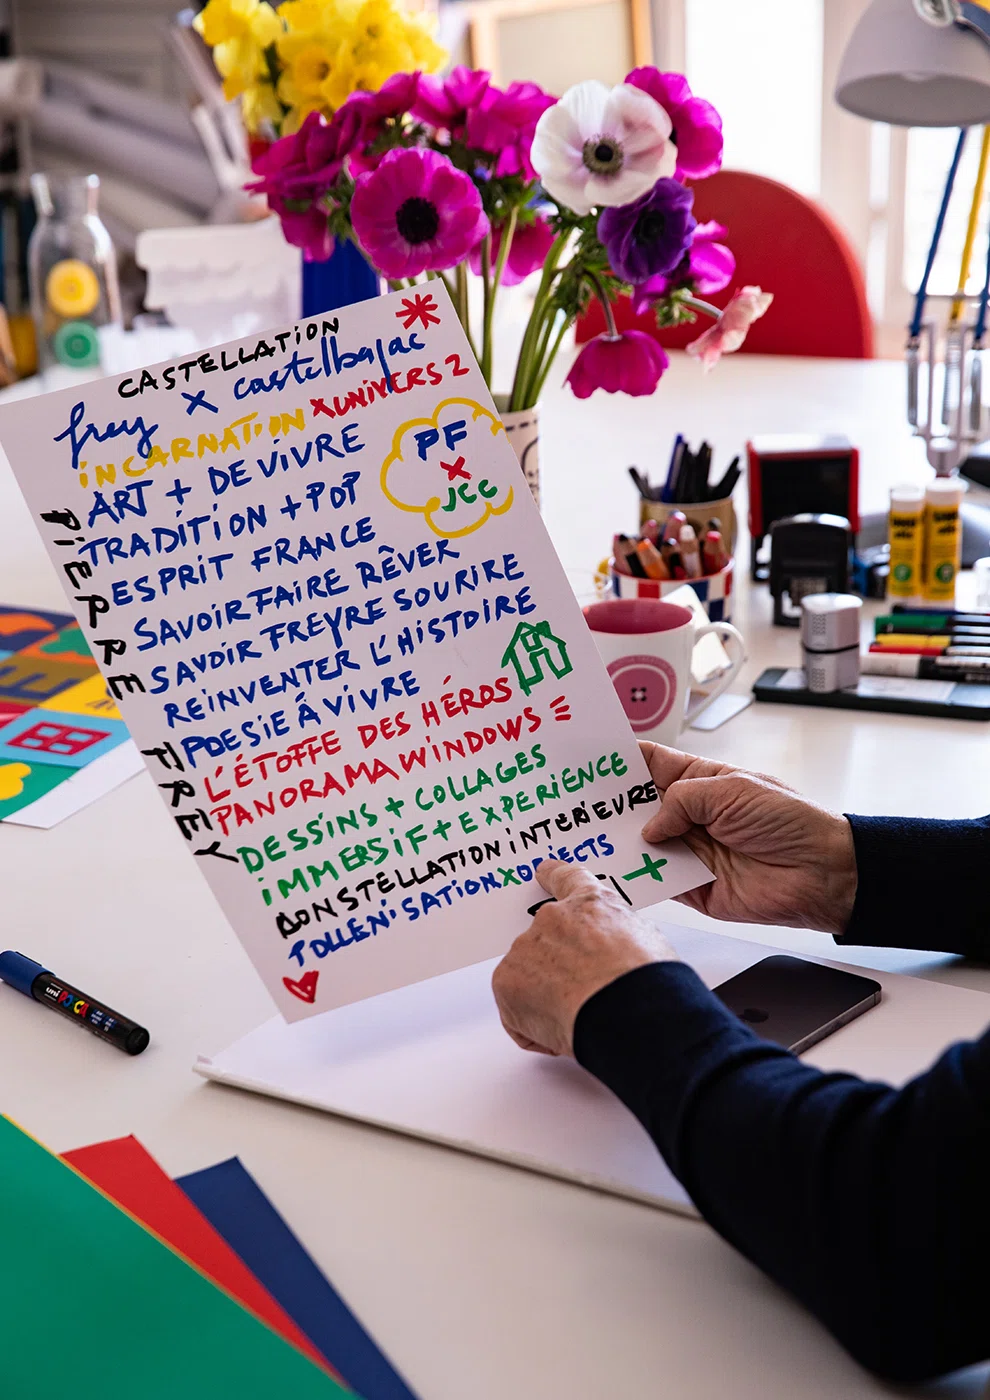 CASTELLATION
frey x castelbajac
iNCARNATiON X UNIVERS 2
ART + DE ViVRE
TRADiTiON + POP
ESPRiT FRANCE
SAVOiR FAiRE RÊVER
SAVOiR FREYRE SOURiRE
REiNVENTER L'HiSTOIRE
POESIE À ViVRE
L'ÉTOFFE DES HÉROS
PANORAMA WiNDOWS
DESSiNS + COLLAGES
iMMERSiF + EXPERiENCE
CONSTELLATION iNTERiEURE
POLLENiSATiON X OBJECTS
PF
X
JCC
PiERRE FREY
uni POSCA